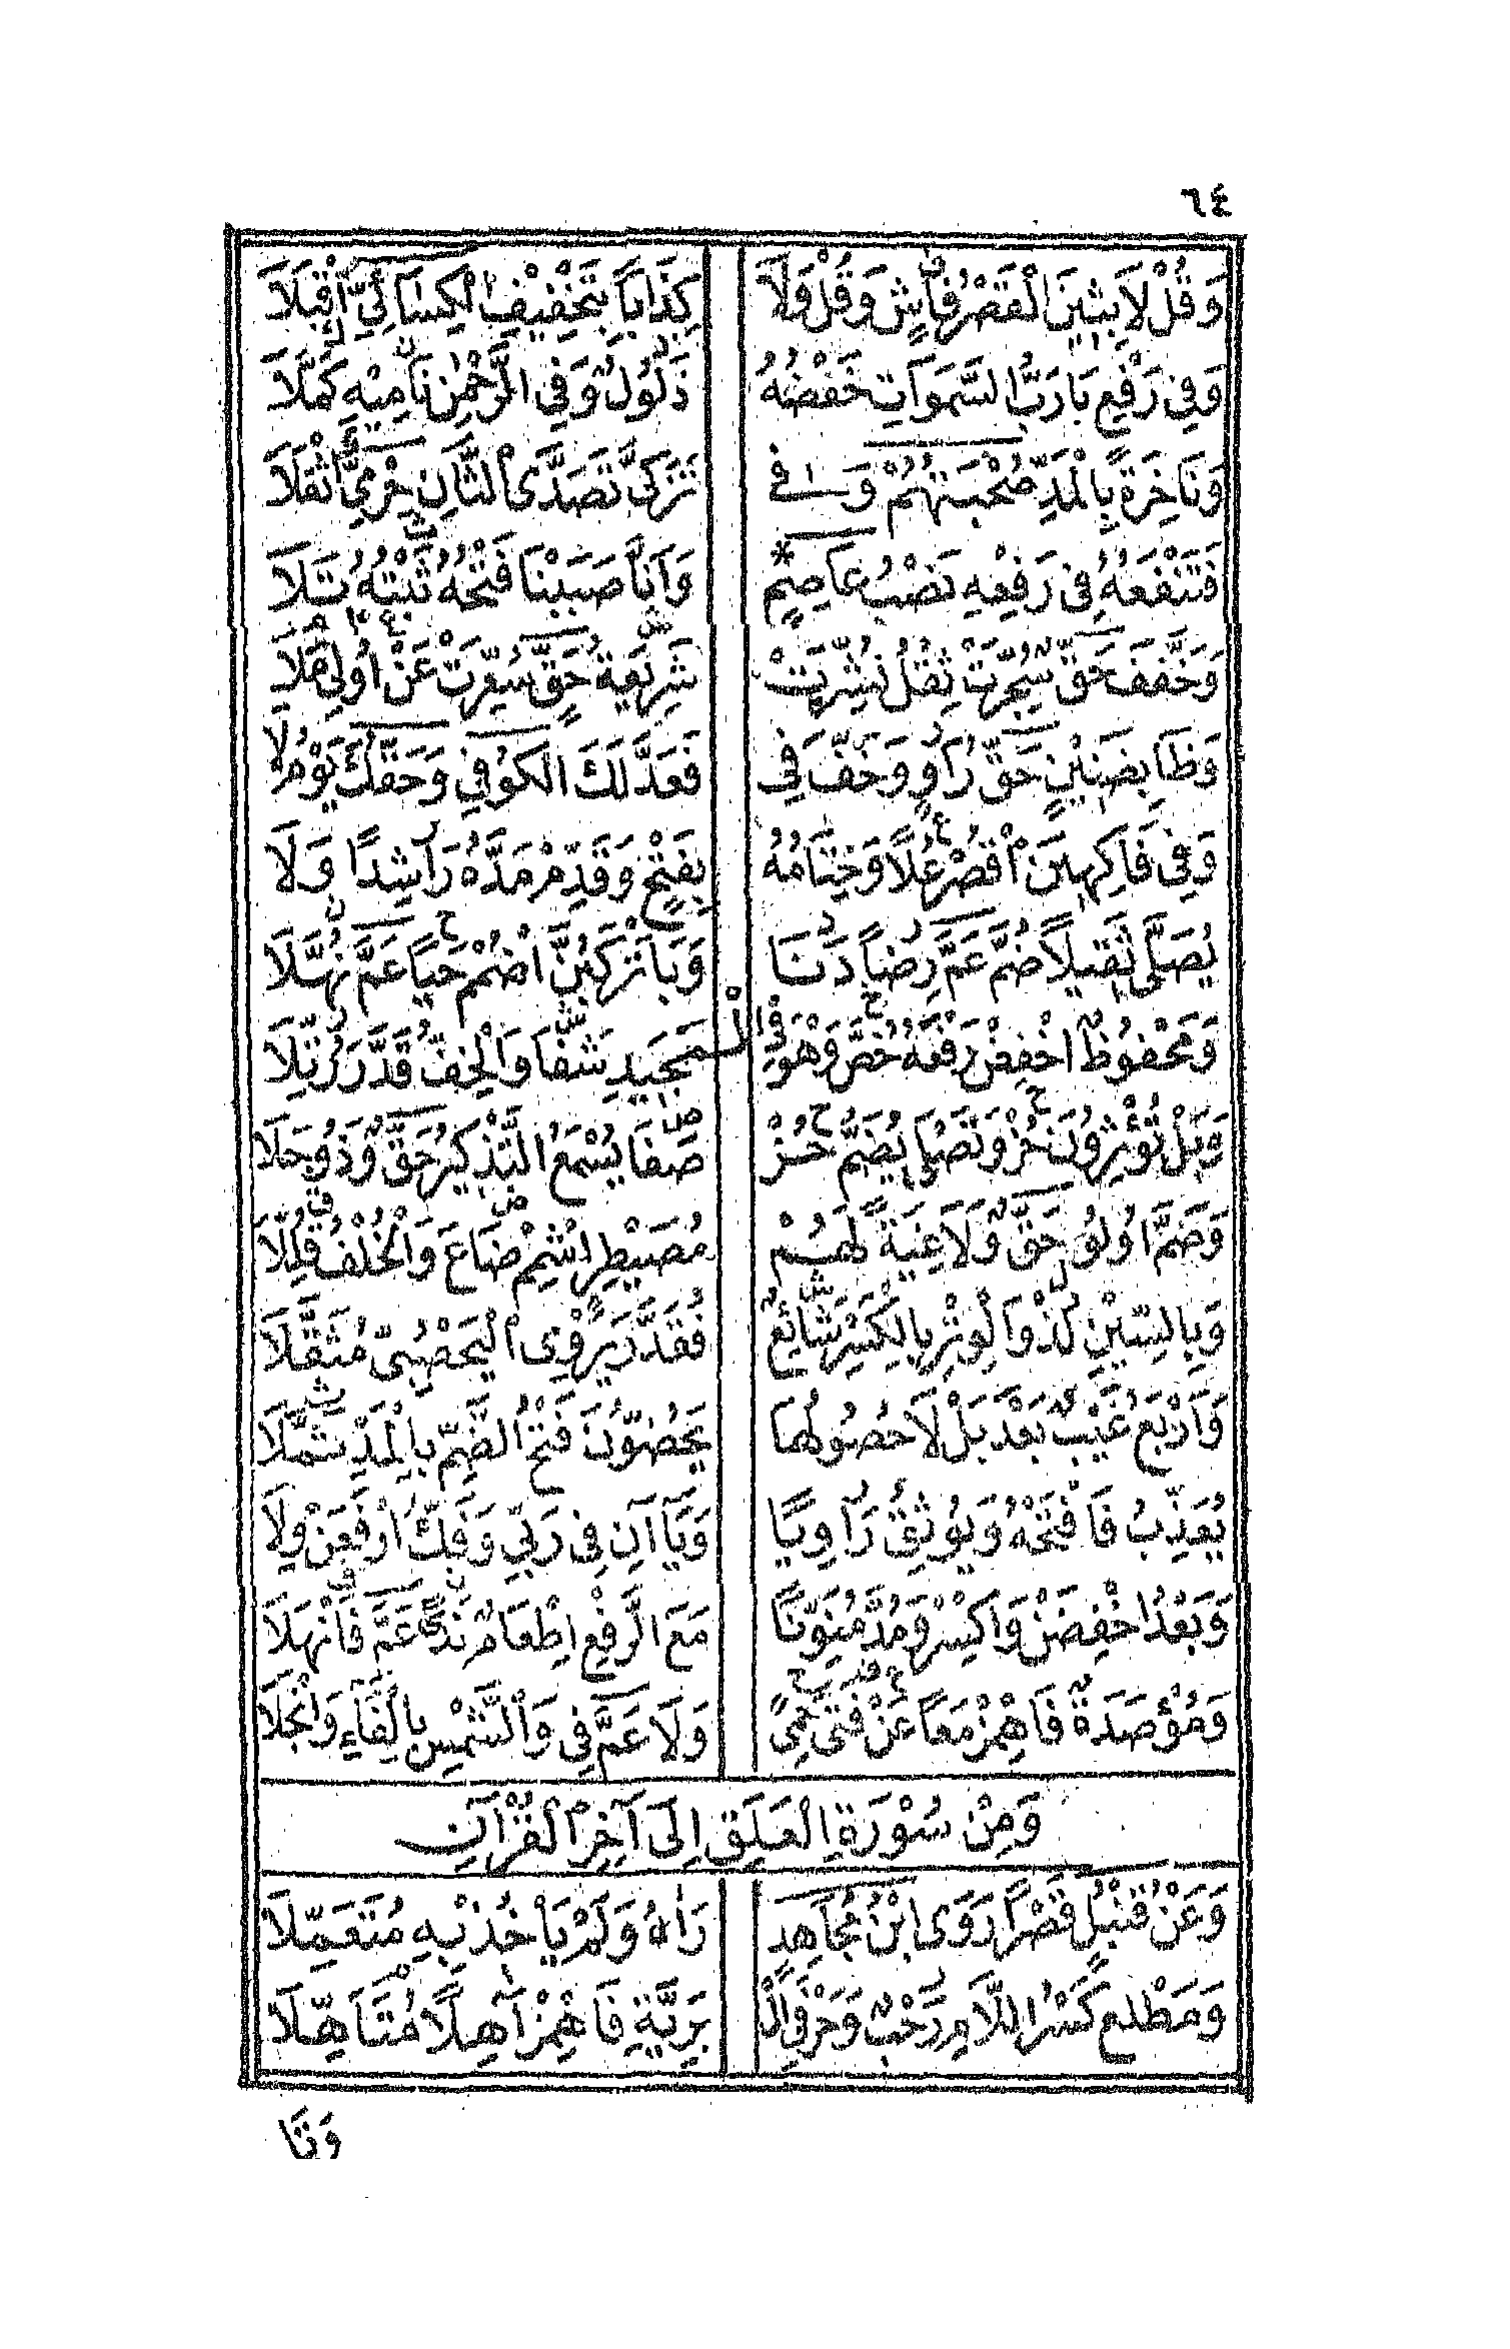 ٦٤
وَقُلْ لَابِثِينَ الْقَصْرُ فَاشٍ وَقُلْ وَلَا كِذَابًا بِتَخْفِيفِ الْكِسَائِيِّ أَقْبَلَا
وَفِى رَفْعِ بَا رَبُّ السَّمٰوَاتِ خَفْضُهُ ذَلُولٌ وَفِي الرَّحْمٰنِ نَامِيهِ كَمَّلَا
وَنَاخِرَةً بِالْمَدِّ صُحْبَتُهُمْ وَفِى تَزَكَّى تَصَدَّى الثَّانِ حِرْمِيٌّ اثْقَلَا
فَتَنْفَعُهُ فِى رَفْعِهِ نَصْبُ عَاصِمٍ * وَأَنَّا صَبَبْنَا فَتْحُهُ ثَبْتُهُ تَلَا
وَخَفَّفَ حَقٌّ سُجِّرَتْ ثِقْلُ نُشِّرَتْ شَرِيعَةُ حَقٍّ سُعِّرَتْ عَنْ أُولِى مَلَا
وَظَا بِضَنِينٍ حَقُّ رَاوٍ وَخَفَّ فِي فَعَدَّلَكَ الْكُوفِي وَحَقُّكَ يَوْمُ لَا
وَفِى فَاكِهِينَ اقْصُرْ عُلًا وَخِتَامُهُ بِفَتْحٍ وَقَدِّمْ مَدَّهُ رَاشِدًا وَلَا
يُصَلَّى ثَقِيلًا ضُمَّ عَمَّ رِضًا دَنَا وَبَا تَرْكَبُنَّ اضْمُمْ حَيًا عَمَّ نُهَّلَا
وَمَحْفُوظٌ اخْفِضْ رَفْعَهُ خُصَّ وَهْوَ فِي الْمَجِيدِ شَفَا وَالْخِفُّ قَدَّرَ رُتِّلَا
وَبَلْ تُؤْثِرُونَ حُزْ وَتَصْلَى يُضَمُّ حُزْ صَفَا يُسْمَعُ التَّذْكِيرُ حَقٌّ وَذُو جَلَا
وَضَمَّ اُولُو حَقٍّ وَلَاغِيَةٌ لَهُمْ مُصَيْطِرٍ اشْمِمْ ضَاعَ وَالْخُلْفُ قُلِّلَا
وَبِالسِّينِ لُذْ وَالْوِتْرِ بِالْكَسْرِ شَائِعٌ فَقَدَّرَ يَرْوِى الْيَحْصُبِىُّ مُثَقَّلَا
وَأَرْبَعُ غَيْبٍ بَعْدَ بَلْ لَا حُصُولُهَا يَحُضُّونَ فَتْحُ الضَّمِّ بِالْمَدِّ ثُمِّلَا
يُعَذِّبُ فَافْتَحْهُ وَيُوثِقُ رَاوِيًا وَيَآءانِ فِى رَبِّي وَفَكُّ ارْفَعَنْ وِلَا
وَبَعْدُ اخْفِضَنْ وَاكْسِرْ وَمُدَّ مُنَوِّنًا مَعَ الرَّفْعِ إِطْعَامٌ نَدًى عَمَّ فَانْهَلَا
وَمُؤْصَدَةٌ فَاهْمِزْ مَعًا عَنْ فَتًى حِمًى وَلَا عَمَّ فِي وَالشَّمْسِ بِالْفَاءِ وَانْجَلَا
وَمِنْ سُوْرَةِ الْعَلَقِ إِلَى آخِرِ الْقُرْآنِ
وَعَنْ قُنْبُلٍ قَصْرًا رَوَى ابْنُ مُجَاهِدٍ رَاٰهُ وَلَمْ يَأْخُذْ بِهِ مُتَعَمِّلَا
وَمَطْلَعِ كَسْرُ اللَّامِ رَحْبٌ وَحَرْفَيِ الْ بَرِيَّةِ فَاهْمِزْ آهِلًا مُتَاَهِّلَا
وَتَا